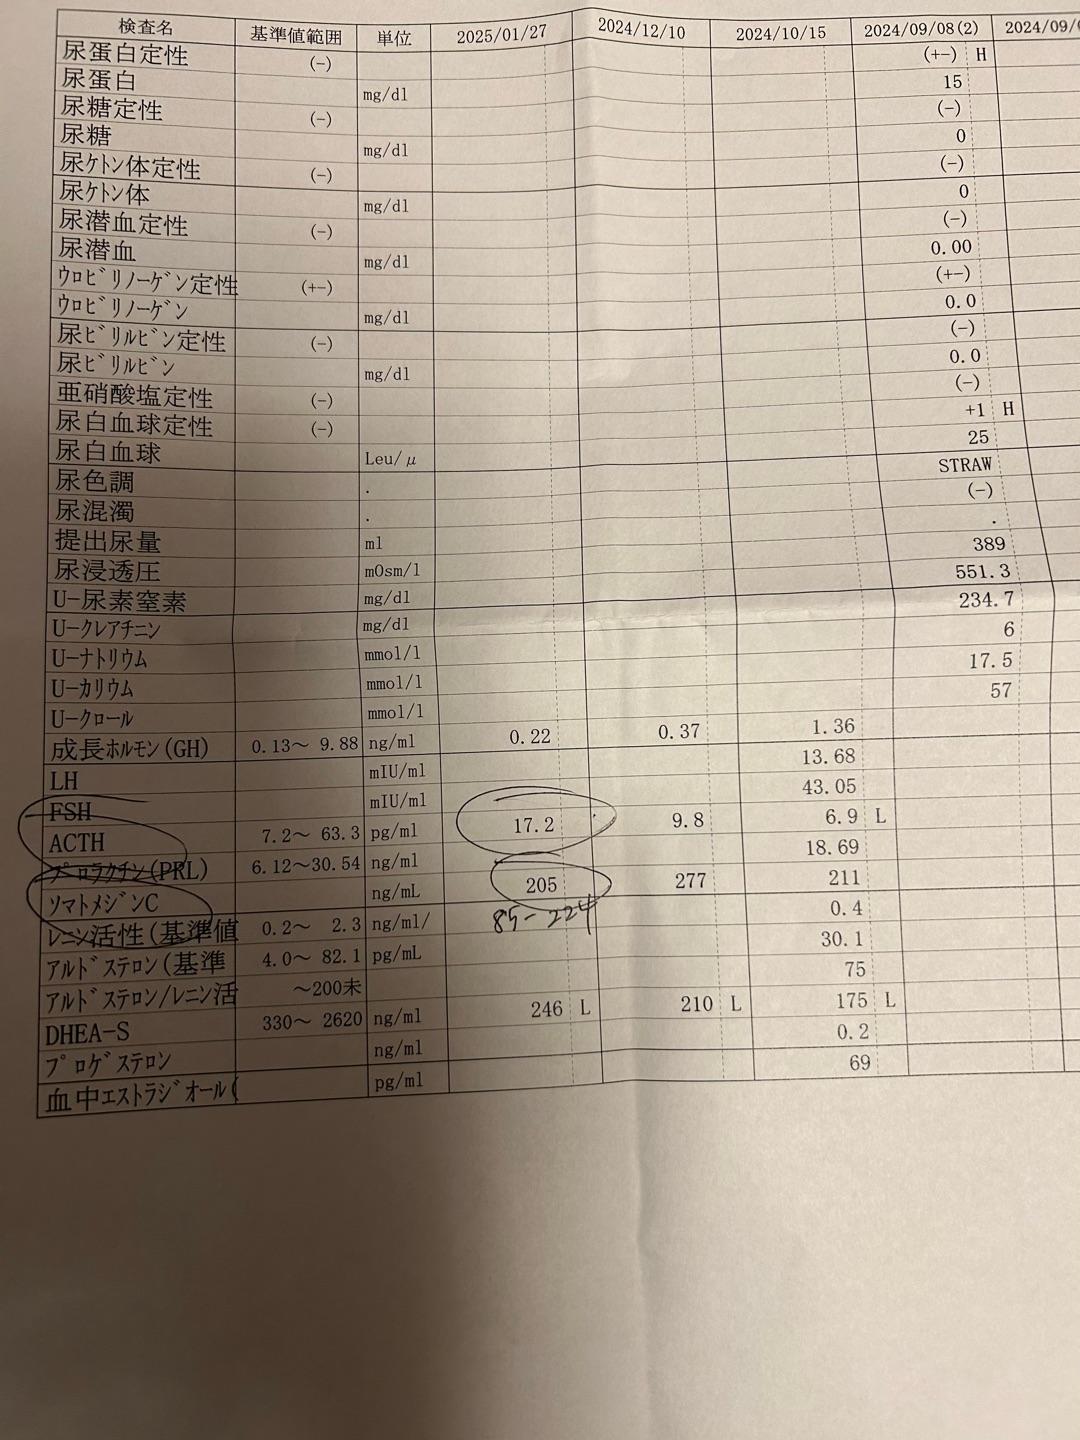 検査名 基準値範囲 単位 2025/01/27 2024/12/10 2024/10/15 2024/09/08(2) 2024/09/
尿蛋白定性 (-) (+-) H
尿蛋白 mg/dl 15
尿糖定性 (-) (-)
尿糖 mg/dl 0
尿ｹﾄﾝ体定性 (-) (-)
尿ｹﾄﾝ体 mg/dl 0
尿潜血定性 (-) (-)
尿潜血 mg/dl 0.00
ｳﾛﾋﾞﾘﾉｰｹﾞﾝ定性 (+-) (+-)
ｳﾛﾋﾞﾘﾉｰｹﾞﾝ mg/dl 0.0
尿ﾋﾞﾘﾙﾋﾞﾝ定性 (-) (-)
尿ﾋﾞﾘﾙﾋﾞﾝ mg/dl 0.0
亜硝酸塩定性 (-) (-)
尿白血球定性 (-) +1 H
尿白血球 Leu/μ 25
尿色調 . STRAW
尿混濁 . (-)
提出尿量 ml .
尿浸透圧 mOsm/l 389
U-尿素窒素 mg/dl 551.3
U-ｸﾚｱﾁﾆﾝ mg/dl 234.7
U-ﾅﾄﾘｳﾑ mmol/l 6
U-ｶﾘｳﾑ mmol/l 17.5
U-ｸﾛｰﾙ mmol/l 57
成長ﾎﾙﾓﾝ(GH) 0.13～ 9.88 ng/ml 0.22 0.37 1.36
LH mIU/ml 13.68
FSH mIU/ml 43.05
ACTH 7.2～ 63.3 pg/ml 17.2 9.8 6.9 L
ﾌﾟﾛﾗｸﾁﾝ(PRL) 6.12～30.54 ng/ml 18.69
ｿﾏﾄﾒｼﾞﾝC ng/mL 205 277 211
85-224
ﾚﾆﾝ活性(基準値 0.2～ 2.3 ng/ml/ 0.4
ｱﾙﾄﾞｽﾃﾛﾝ(基準 4.0～ 82.1 pg/mL 30.1
ｱﾙﾄﾞｽﾃﾛﾝ/ﾚﾆﾝ活 ～200未 75
DHEA-S 330～ 2620 ng/ml 246 L 210 L 175 L
ﾌﾟﾛｹﾞｽﾃﾛﾝ ng/ml 0.2
血中ｴｽﾄﾗｼﾞｵｰﾙ( pg/ml 69